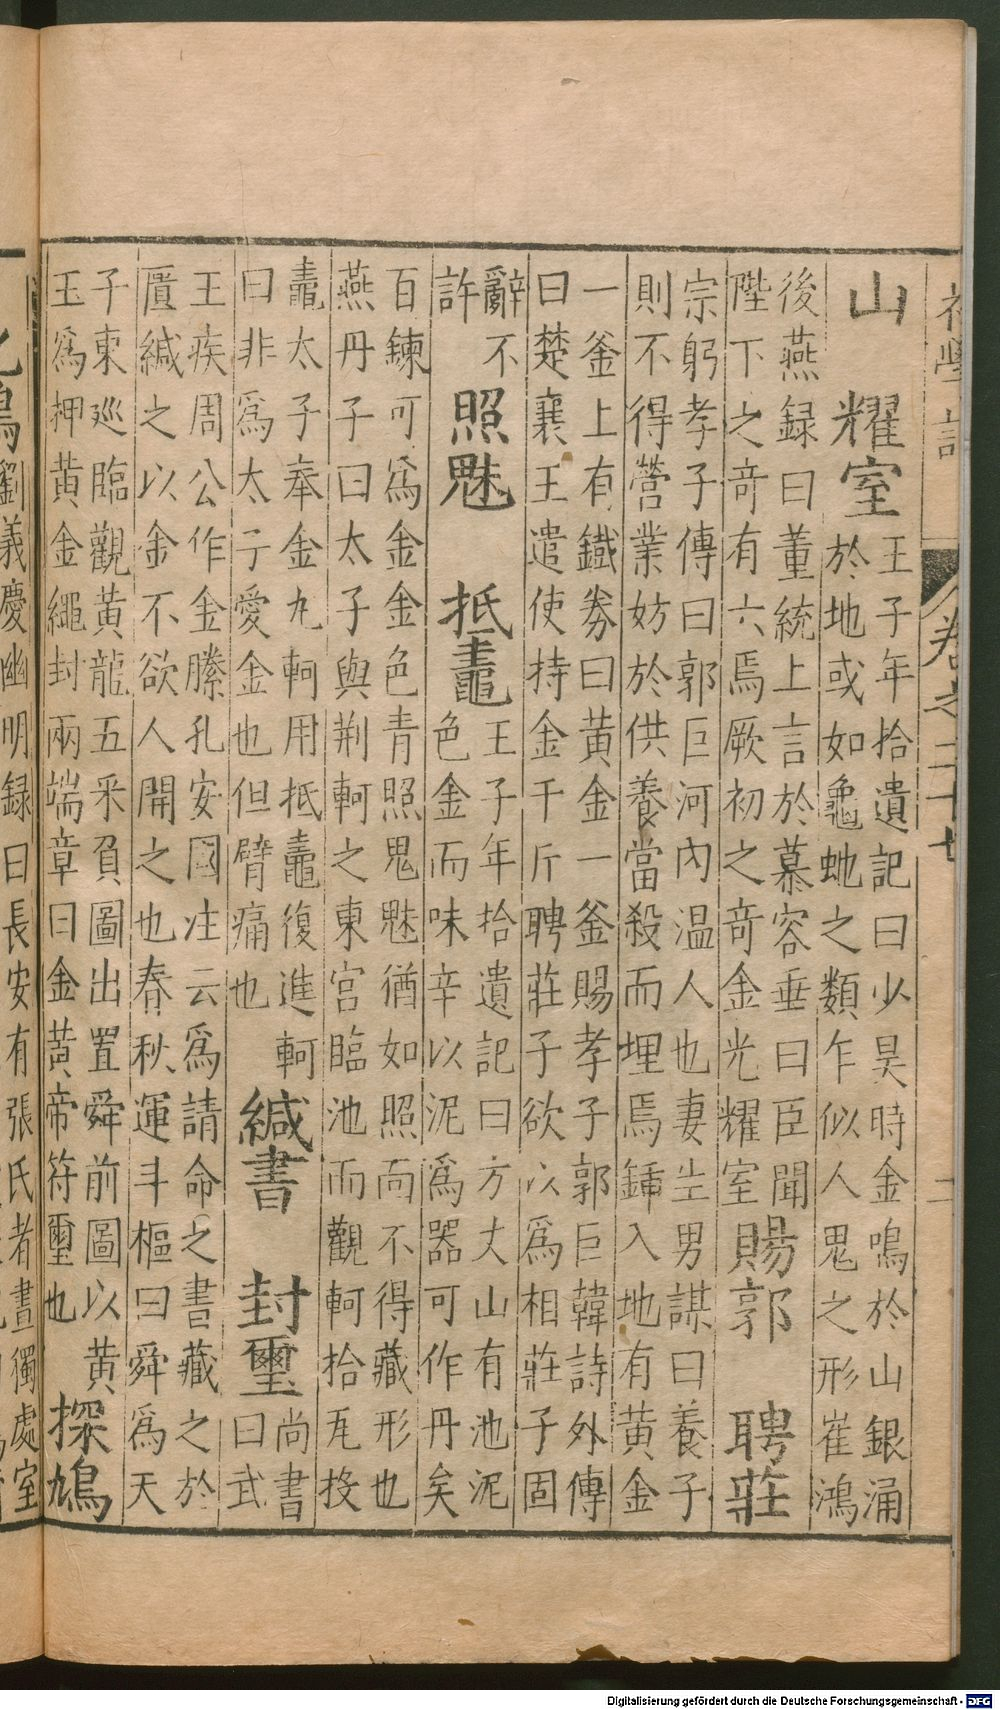 初學記 卷之二十七 二
山 耀室
王子年拾遺記曰少昊時金鳴於山銀涌
於地或如龜虵之類乍似人鬼之形崔鴻
後燕録曰董統上言於慕容垂曰臣聞
陛下之竒有六焉厥初之竒金光耀室
賜郭 聘莊
宗躬孝子傳曰郭巨河内温人也妻生男謀曰養子
則不得營業妨於供養當殺而埋焉鍤入地有黄金
一釜上有鐵劵曰黄金一釜賜孝子郭巨韓詩外傳
曰楚襄王遣使持金千斤聘莊子欲以爲相莊子固
辭不
許
照魅 抵鼃
王子年拾遺記曰方丈山有池泥
色金而味辛以泥爲器可作丹矣
百鍊可爲金金色青照鬼魅猶如照面不得藏形也
燕丹子曰太子與荆軻之東宫臨池而觀軻拾瓦投
鼃太子奉金丸軻用抵鼃復進軻
曰非爲太子愛金也但臂痛也
緘書 封璽
尚書
曰武
王疾周公作金縢孔安國注云爲請命之書藏之於
匱緘之以金不欲人開之也春秋運斗樞曰舜爲天
子東廵臨觀黄龍五采負圖出置舜前圖以黄
玉爲押黄金繩封兩端章曰金黄帝符璽也
探鳩
劉義慶幽明録曰長安有張氏者晝獨處室
Digitalisierung gefördert durch die Deutsche Forschungsgemeinschaft - DFG